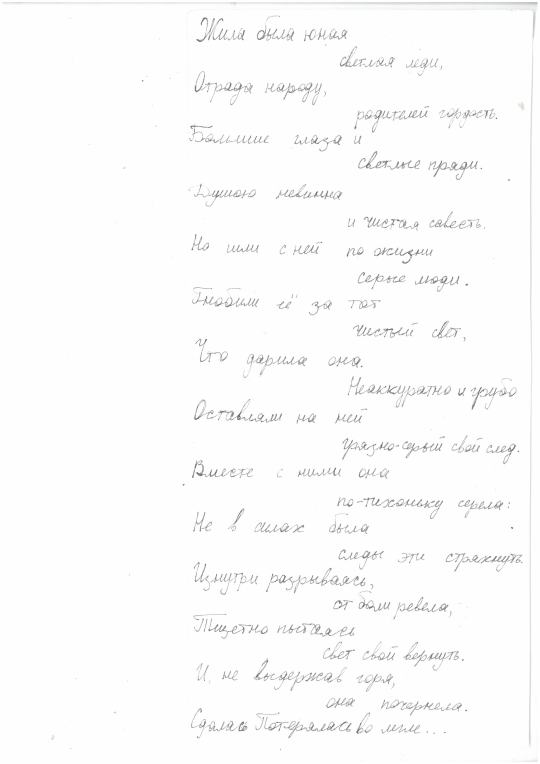 Жила была юная
светлая леди,
Отрада народу,
родителей гордость.
Большие глаза и
светлые пряди.
Душою невинна
и чистая совесть.
Но шли с ней по жизни
серые люди.
Гнобили её за тот
чистый свет,
Что дарила она.
Неаккуратно и грубо
Оставляли на ней
грязно-серый свой след.
Вместе с ними она
по-тихоньку серела:
Не в силах была
следы эти стряхнуть.
Изнутри разрываясь,
от боли ревела,
Тщетно пытаясь
свет свой вернуть.
И, не выдержав горя,
она почернела.
Сдалась Потерялась во мгле...